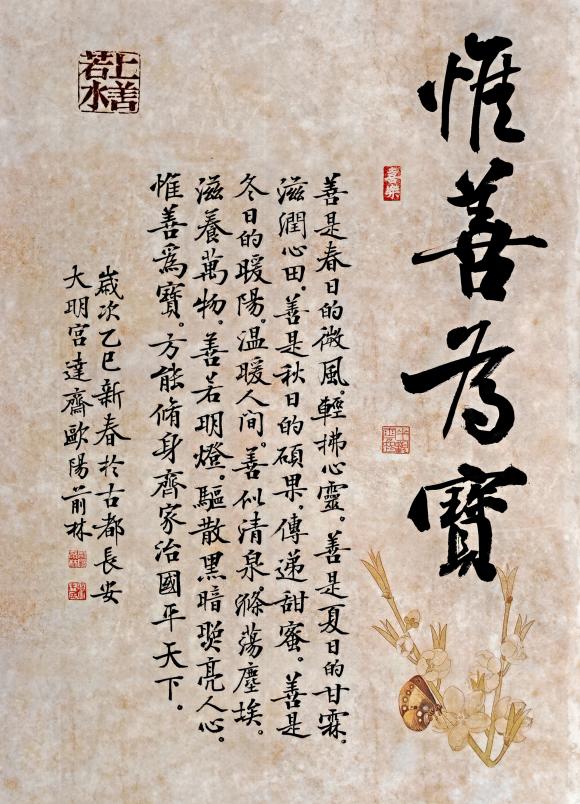 惟善為寶
喜樂
善是春日的微風。輕拂心靈。善是夏日的甘霖。
滋潤心田。善是秋日的碩果。傳遞甜蜜。善是
冬日的暖陽。温暖人间。善似清泉。滌蕩塵埃。
滋養萬物。善若明燈。驅散黑暗。照亮人心。
惟善為寶。方能脩身齊家治國平天下。
嵗次乙巳新春於古都長安
大明宫達齋歐陽前林
上善若水